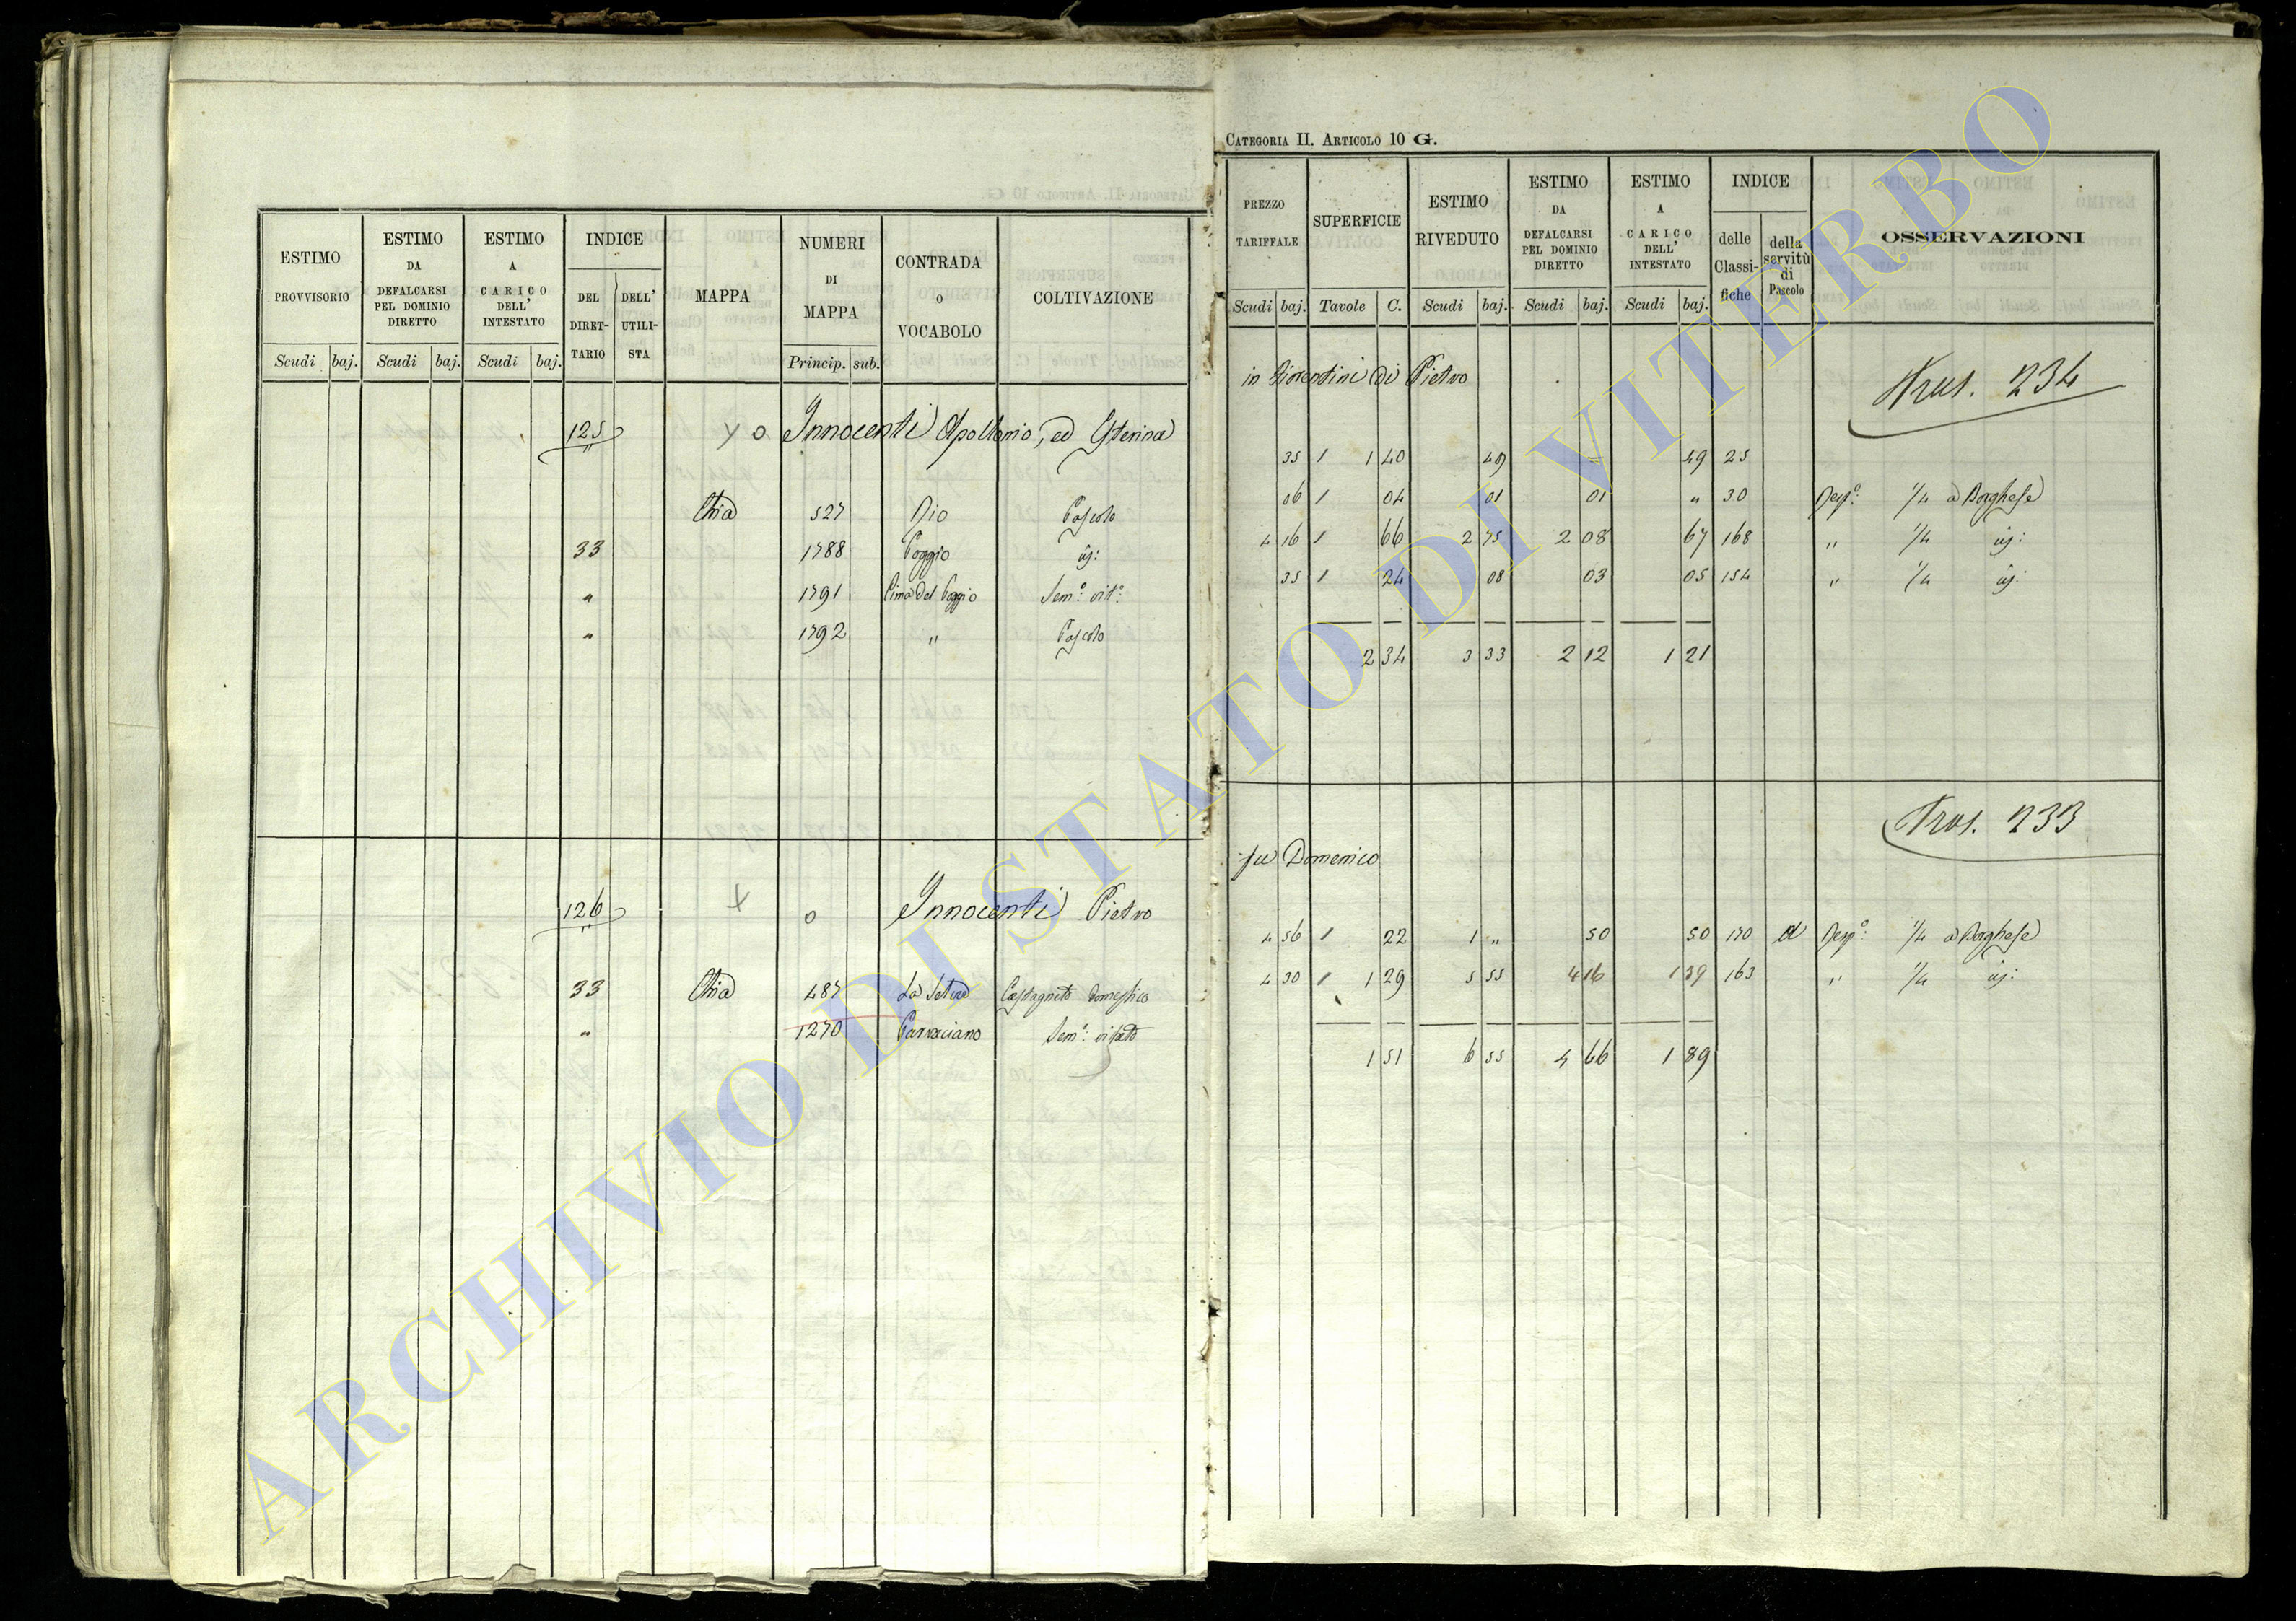 CATEGORIA II. ARTICOLO 10 G.
ESTIMO PROVVISORIO Scudi baj.
ESTIMO DA DEFALCARSI PEL DOMINIO DIRETTO Scudi baj.
ESTIMO A CARICO DELL' INTESTATO Scudi baj.
INDICE DEL DIRETTARIO DELL' UTILISTA
MAPPA
NUMERI DI MAPPA Princip. sub.
CONTRADA O VOCABOLO
COLTIVAZIONE
PREZZO TARIFFALE Scudi baj.
SUPERFICIE Tavole C.
ESTIMO RIVEDUTO Scudi baj.
ESTIMO DA DEFALCARSI PEL DOMINIO DIRETTO Scudi baj.
ESTIMO A CARICO DELL' INTESTATO Scudi baj.
INDICE delle Classifiche della servitù di Pascolo
OSSERVAZIONI
125 Innocenti Apollonio, ed Sterina in Fiorentini di Pietro
Tras. 234
Chia 527 Rio Pascolo 35 1 1 40 49 = 49 25
33 1788 Poggio id: 06 1 04 01 01 " 30 Resp.º: 1/4 a Borghese
" 1791 Cima del Poggio Sem.º: vit.º: 4 16 1 66 2 75 2 08 67 168 " 1/4 id:
" 1792 " Pascolo 35 1 24 08 03 05 154 " 1/4 id:
2 34 3 33 2 12 1 21
Tras. 233
126 Innocenti Pietro fu Domenico
33 Chia 487 Castagneto domestico 4 56 1 22 1 " 50 50 170 d Resp.º: 1/4 a Borghese
" 1270 Parraciano Sem.º: vitato 4 30 1 1 29 5 55 4 16 1 39 163 " 1/4 id:
1 51 6 55 4 66 1 89
ARCHIVIO DI STATO DI VITERBO